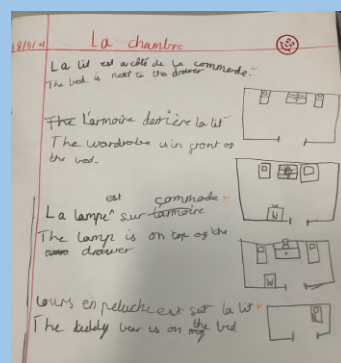 18/5/21
La chambre
La lit est a côté de la commode.
The bed is next to the drawer
The L'armoire derrière la lit
The wardrobe is in front of
the bed.
est commode
La lampe^ sur l'armoire
The lamp is on top of the
drawer
W
L'ours en peluche est sur la lit
W
The teddy bear is on my the bed